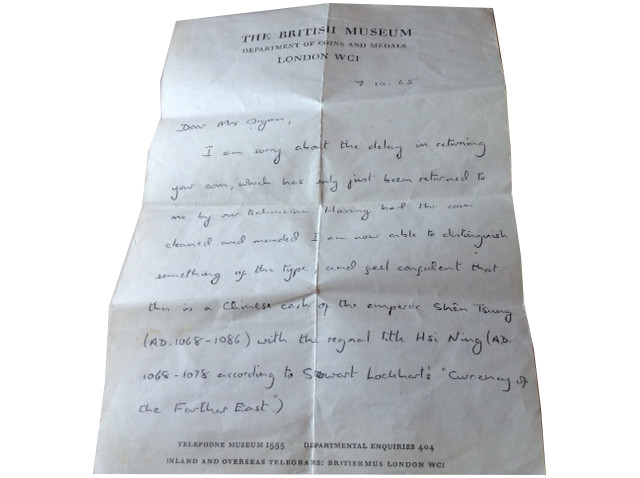 THE BRITISH MUSEUM
DEPARTMENT OF COINS AND MEDALS
LONDON WC1
7.10.65
Dear Mrs Organ,
I am sorry about the delay in returning
your coin, which has only just been returned to
me by our technician. Having had the coin
cleaned and mended I am now able to distinguish
something of the type, and feel confident that
this is a Chinese cash of the emperor Shên Tsung
(AD.1068-1086) with the regnal title Hsi Ning (AD.
1068-1078 according to Stewart Lockhart's "Currency of
the Farther East".)
TELEPHONE MUSEUM 1555 DEPARTMENTAL ENQUIRIES 404
INLAND AND OVERSEAS TELEGRAMS: BRITISHMUS LONDON WC1